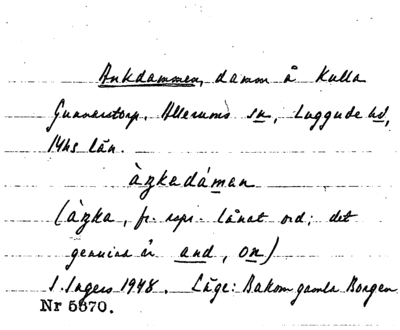 Ankdammen, damm å Kulla
Gunnarstorp. Allerums sn, Luggude hd,
Mhs län.
àŋkadáman
(àŋka, fr. rspr. lånat ord; det
genuina är and, on)
I. Ingers 1948. Läge: Bakom gamla Borgen
Nr 5670.